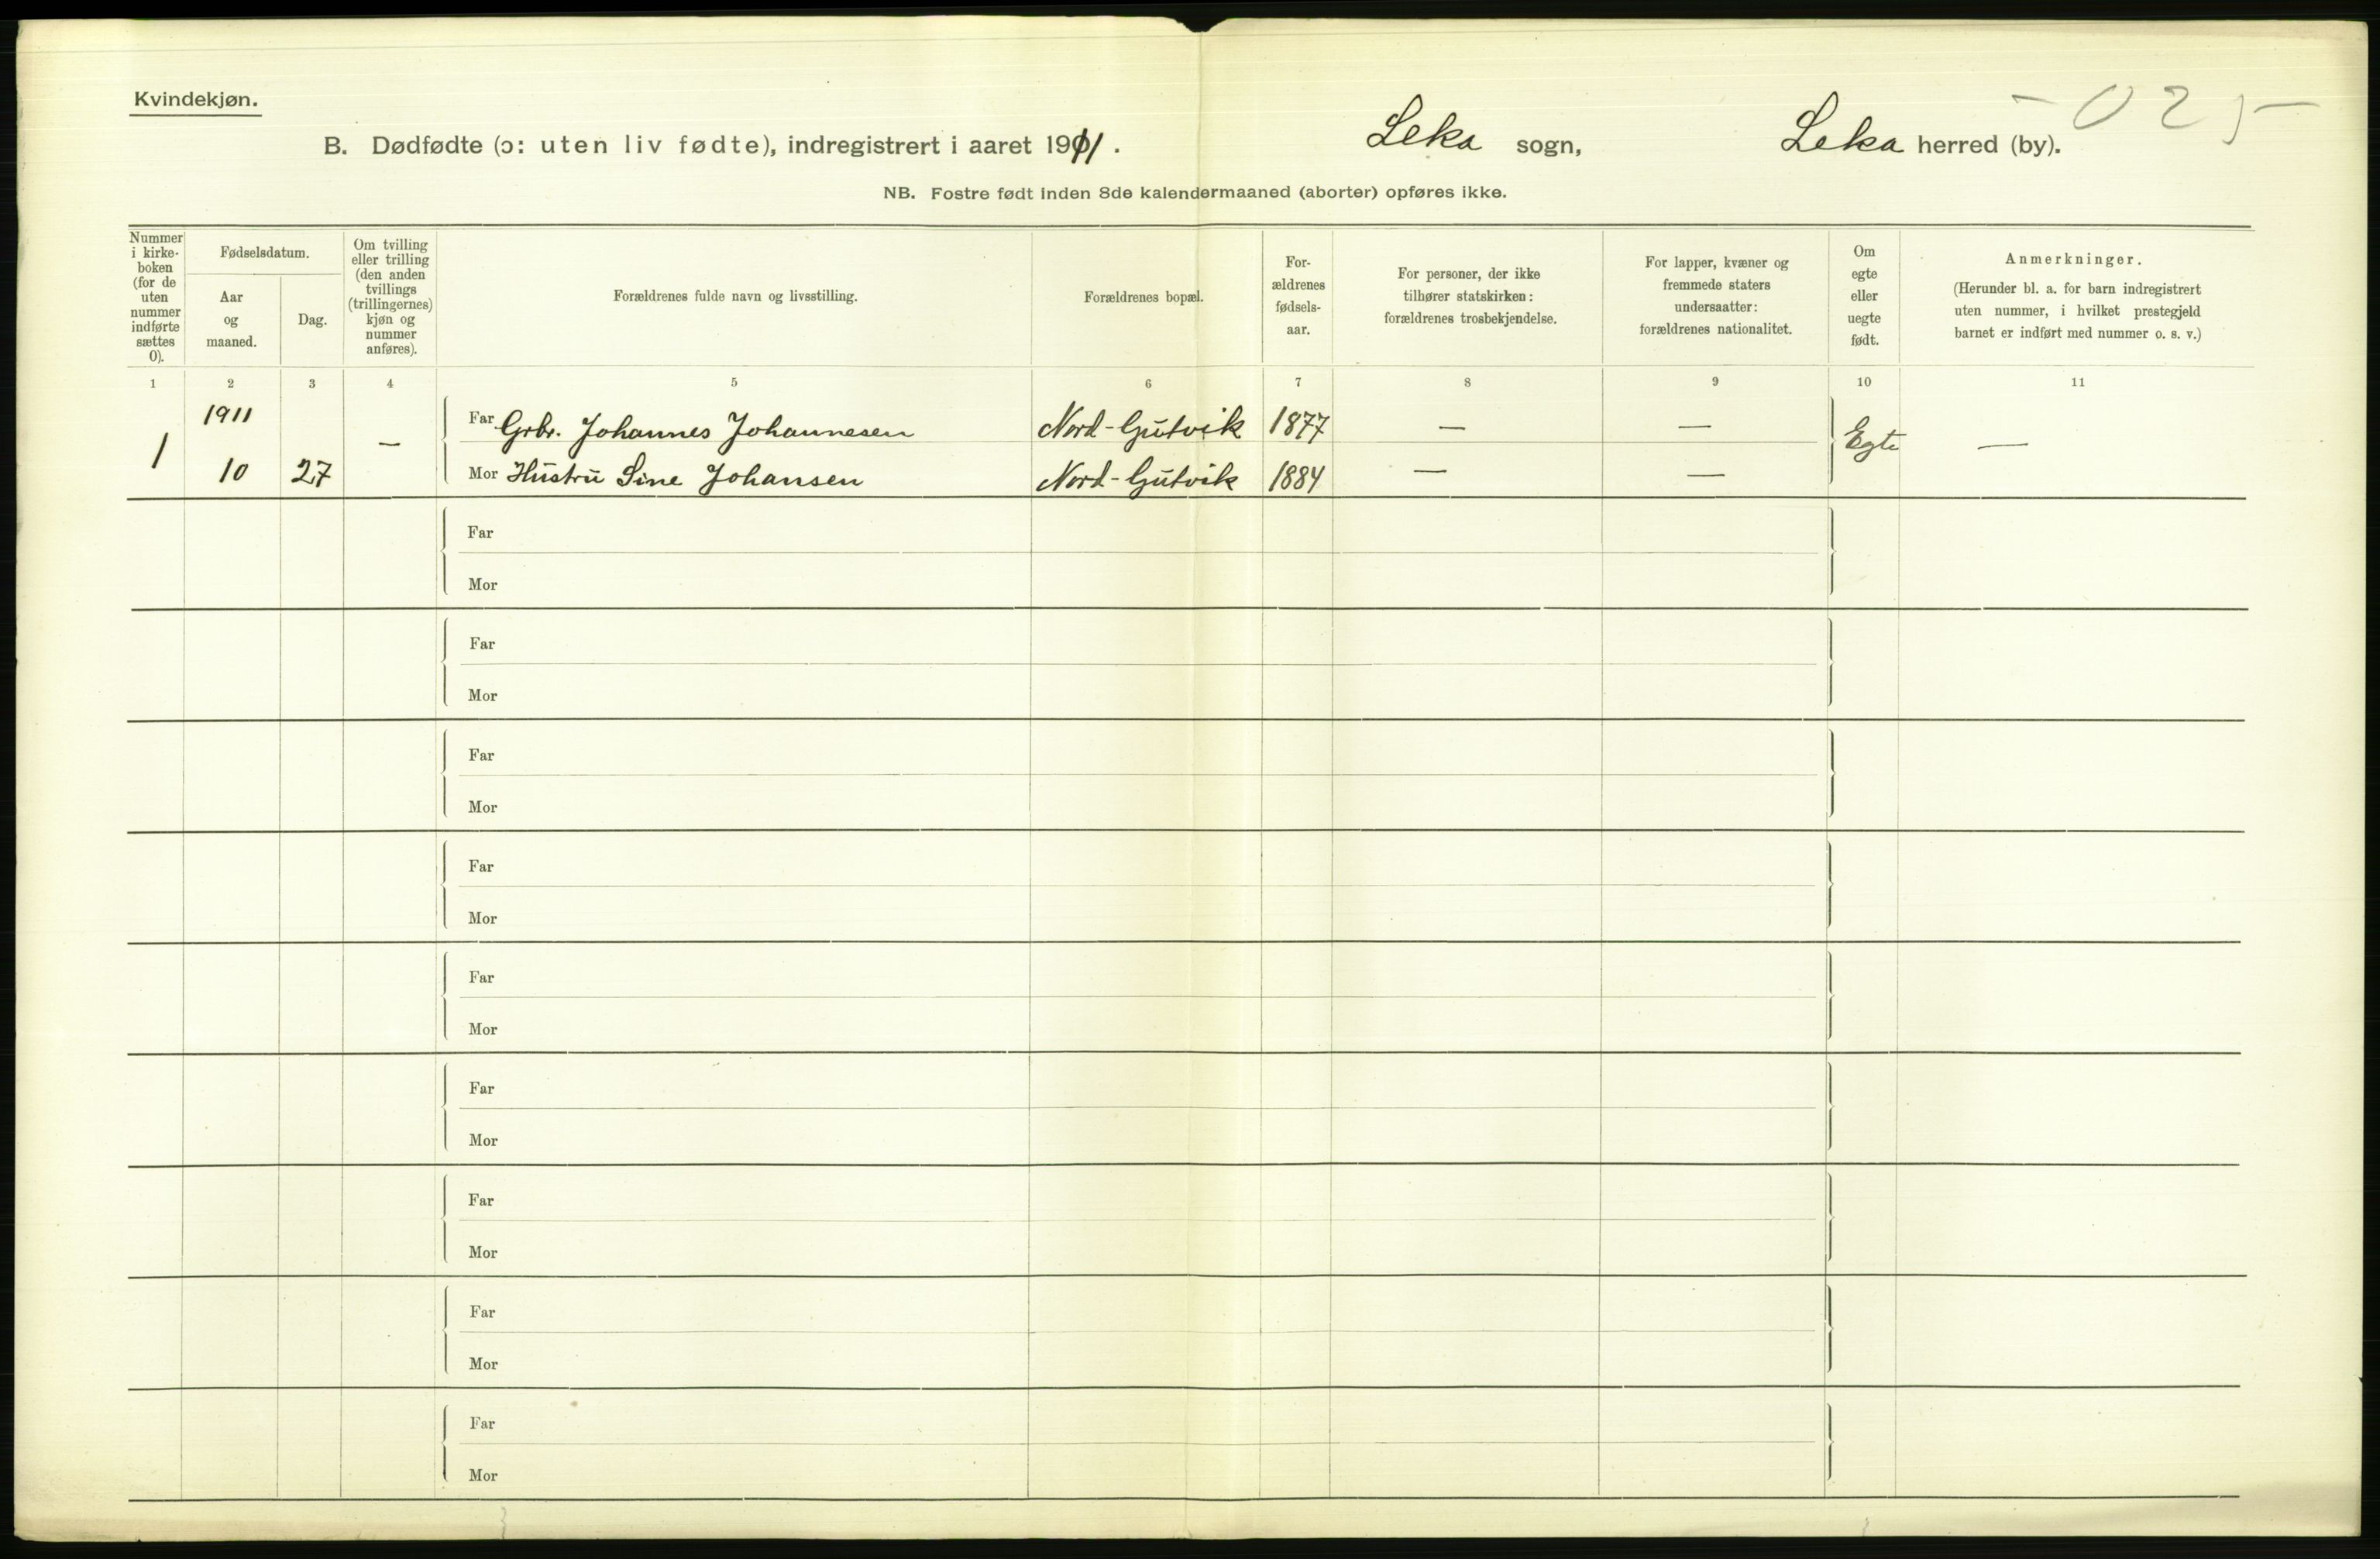 Kvindekjøn.
B. Dødfødte (ɔ: uten liv fødte), indregistrert i aaret 1911. Leka sogn, Leka herred (by).
- 025 -
NB. Fostre født inden 8de kalendermaaned (aborter) opføres ikke.
Nummer i kirke- boken (for de uten nummer indførte sættes 0).
Fødselsdatum.
Aar og maaned.
Dag.
Om tvilling eller trilling (den anden tvillings (trillingernes) kjøn og nummer anføres).
Forældrenes fulde navn og livsstilling.
Forældrenes bopæl.
For- ældrenes fødsels- aar.
For personer, der ikke tilhører statskirken: forældrenes trosbekjendelse.
For lapper, kvæner og fremmede staters undersaatter: forældrenes nationalitet.
Om egte eller uegte født.
Anmerkninger.
(Herunder bl. a. for barn indregistrert uten nummer, i hvilket prestegjeld barnet er indført med nummer o. s. v.)
1 2 3 4 5 6 7 8 9 10 11
1911 Far Grbr. Johannes Johannesen Nord-Gutvik 1877 — —
1 — Egte —
10 27 Mor Hustru Sine Johansen Nord-Gutvik 1884 — —
Far
Mor
Far
Mor
Far
Mor
Far
Mor
Far
Mor
Far
Mor
Far
Mor
Far
Mor
Far
Mor